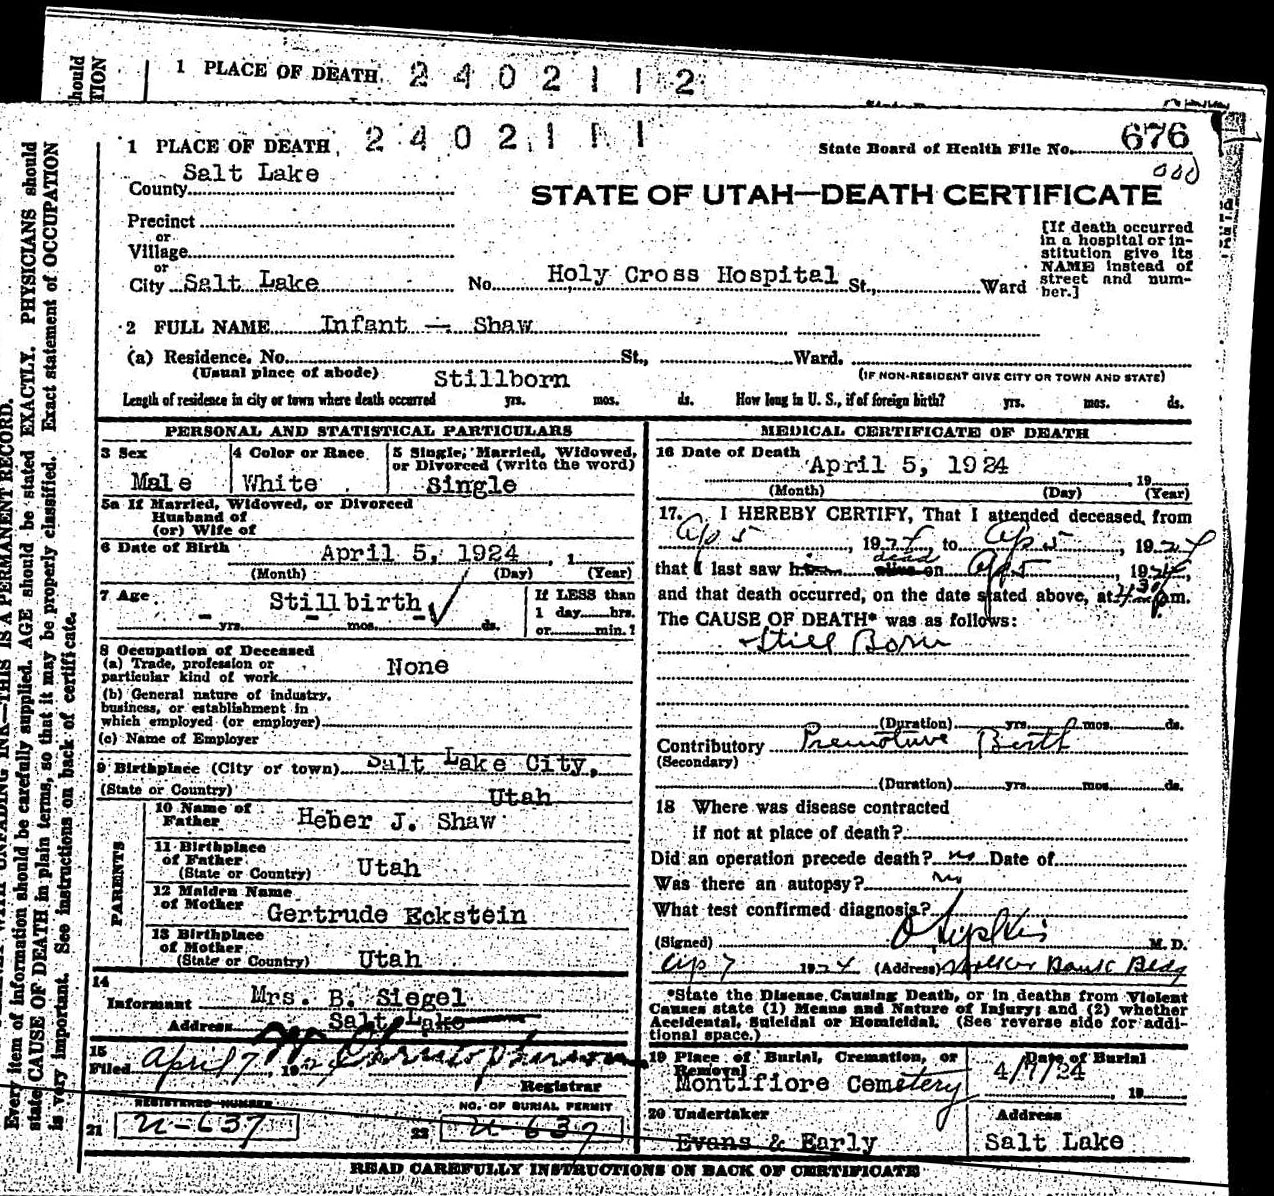 1 PLACE OF DEATH 2 4 0 2 1 1 2
1 PLACE OF DEATH 2 4 0 2 1 1 1
State Board of Health File No. 676
County Salt Lake
STATE OF UTAH—DEATH CERTIFICATE
Precinct
or
Village
or
City Salt Lake No. Holy Cross Hospital St., Ward
[If death occurred
in a hospital or in-
stitution give its
NAME instead of
street and num-
ber.]
2 FULL NAME Infant — Shaw
(a) Residence. No. St., Ward.
(Usual place of abode) (IF NON-RESIDENT GIVE CITY OR TOWN AND STATE)
Stillborn
Length of residence in city or town where death occurred yrs. mos. ds. How long in U. S., if of foreign birth? yrs. mos. ds.
PERSONAL AND STATISTICAL PARTICULARS
3 Sex
Male
4 Color or Race
White
5 Single, Married, Widowed,
or Divorced (write the word)
Single
5a If Married, Widowed, or Divorced
Husband of
(or) Wife of
6 Date of Birth
April 5, 1924, 1
(Month) (Day) (Year)
7 Age
Stillbirth
- yrs. - mos. - ds.
If LESS than
1 day hrs.
or min.?
8 Occupation of Deceased
(a) Trade, profession or
particular kind of work None
(b) General nature of industry,
business, or establishment in
which employed (or employer)
(c) Name of Employer
9 Birthplace (City or town) Salt Lake City,
(State or Country) Utah
PARENTS
10 Name of
Father Heber J. Shaw
11 Birthplace
of Father
(State or Country) Utah
12 Maiden Name
of Mother Gertrude Eckstein
13 Birthplace
of Mother
(State or Country) Utah
14
Informant Mrs. B. Siegel
Address Salt Lake
15
Filed April 7, 1924
Registrar
REGISTERED NUMBER
21 U-637
NO. OF BURIAL PERMIT
22 U 637
MEDICAL CERTIFICATE OF DEATH
16 Date of Death
April 5, 1924, 19
(Month) (Day) (Year)
17. I HEREBY CERTIFY, That I attended deceased from
Ap 5, 1924 to Ap 5, 1924
that I last saw h alive dead on Ap 5, 1924,
and that death occurred, on the date stated above, at 4:30 p.m.
The CAUSE OF DEATH* was as follows:
Still Born
(Duration) yrs. mos. ds.
Contributory Premature Birth
(Secondary)
(Duration) yrs. mos. ds.
18 Where was disease contracted
if not at place of death?
Did an operation precede death? no Date of
Was there an autopsy? no
What test confirmed diagnosis?
(Signed) M. D.
Ap 7 1924 (Address) Walker Bank Bldg
*State the Disease Causing Death, or in deaths from Violent
Causes state (1) Means and Nature of Injury; and (2) whether
Accidental, Suicidal or Homicidal. (See reverse side for addi-
tional space.)
19 Place of Burial, Cremation, or
Removal
Montifiore Cemetery
Date of Burial
4/7/24, 19
20 Undertaker
Evans & Early
Address
Salt Lake
READ CAREFULLY INSTRUCTIONS ON BACK OF CERTIFICATE
Every item of information should be carefully supplied. AGE should be stated EXACTLY. PHYSICIANS should
state CAUSE OF DEATH in plain terms, so that it may be properly classified. Exact statement of OCCUPATION
is very important. See instructions on back of certificate.